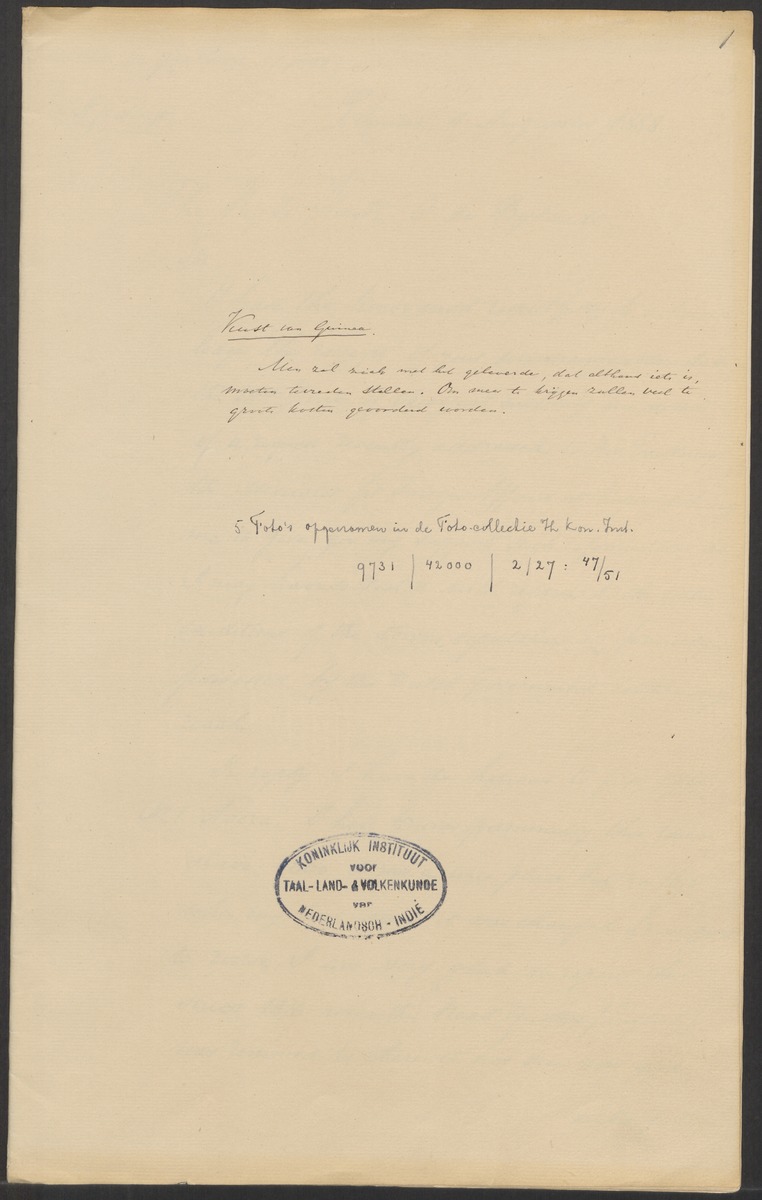 1
Kust van Guinea.
Men zal zich met het geleverde, dat althans iets is,
moeten tevreden stellen. Om meer te krijgen zullen veel te
groote kosten gevorderd worden.
5 Foto's opgenomen in de Foto-collectie H Kon. Inst.
9731 | 42000 | 2/27 : 47/51
KONINKLIJK INSTITUUT
VOOR
TAAL- LAND- & VOLKENKUNDE
VAN
NEDERLANDSCH - INDIË